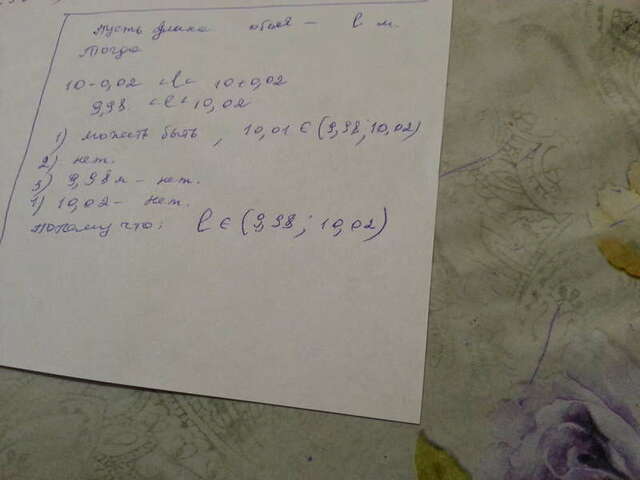 Пусть длина обоев — l м.
Тогда
10-0,02 <l< 10+0,02
9,98 <l< 10,02
1) может быть, 10,01 ∈ (9,98; 10,02)
2) нет.
3) 9,98 м - нет.
1) 10,02 - нет.
Потому что: l ∈ (9,98; 10,02)